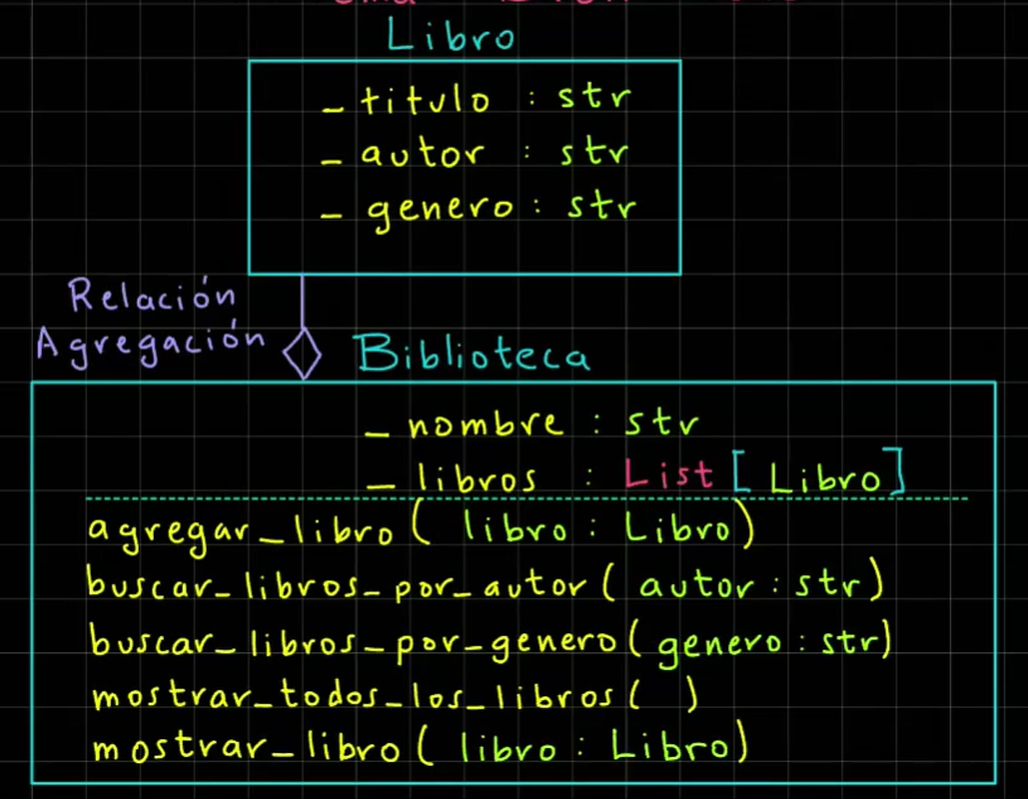 Libro
- titulo : str
- autor : str
- genero : str
Relación
Agregación
Biblioteca
- nombre : str
- libros : List [ Libro ]
agregar_libro ( libro : Libro )
buscar_libros_por_autor ( autor : str )
buscar_libros_por_genero ( genero : str )
mostrar_todos_los_libros ( )
mostrar_libro ( libro : Libro )